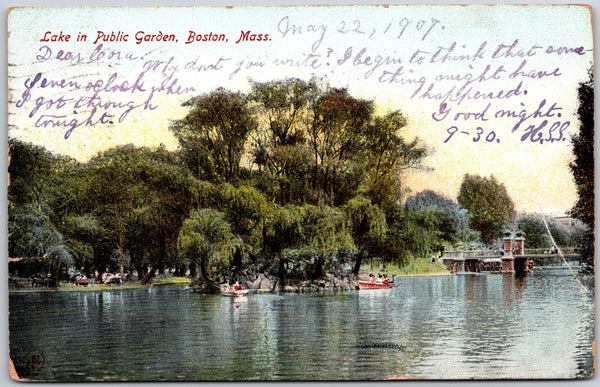 Lake in Public Garden, Boston, Mass.
May 22, 1907.
Dear Cora. Why dont you write? I begin to think that some-
thing might have
happened.
Seven o'clock when
I got through
tonight.
Good night.
9-30. H.S.S.